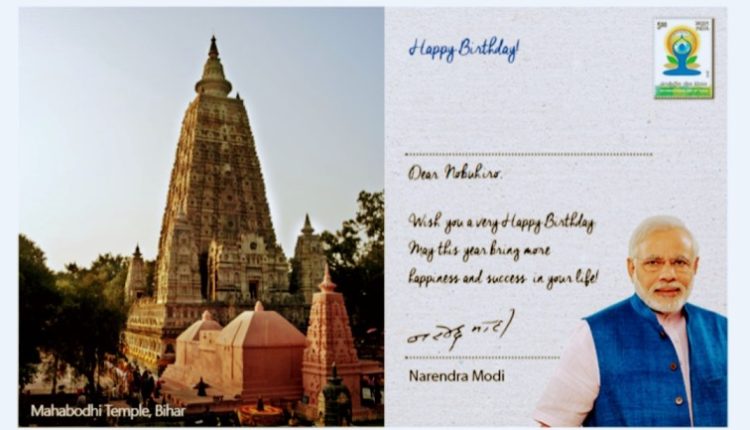 Happy Birthday!
INDIA
Dear Nobuhiro,
Wish you a very Happy Birthday
May this year bring more
happiness and success in your life!
Narendra Modi
Mahabodhi Temple, Bihar